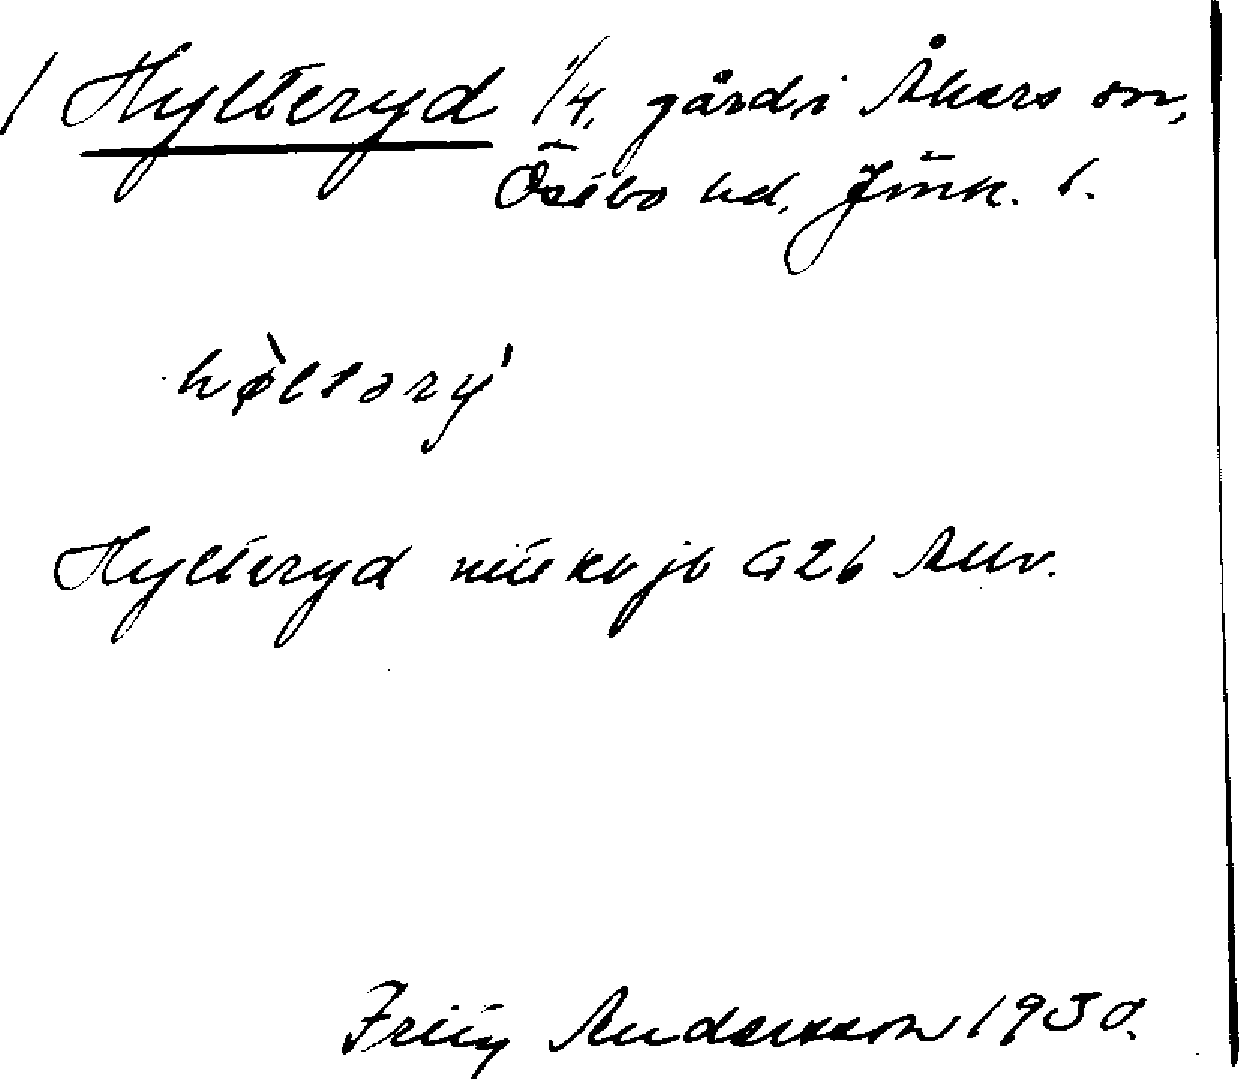 / Hylteryd 1/4, gård i Åkers sn,
Östbo hd, Jönk. l.
hø̀ltəry'
Hylteryd jb
Fritz Andersson 1930.